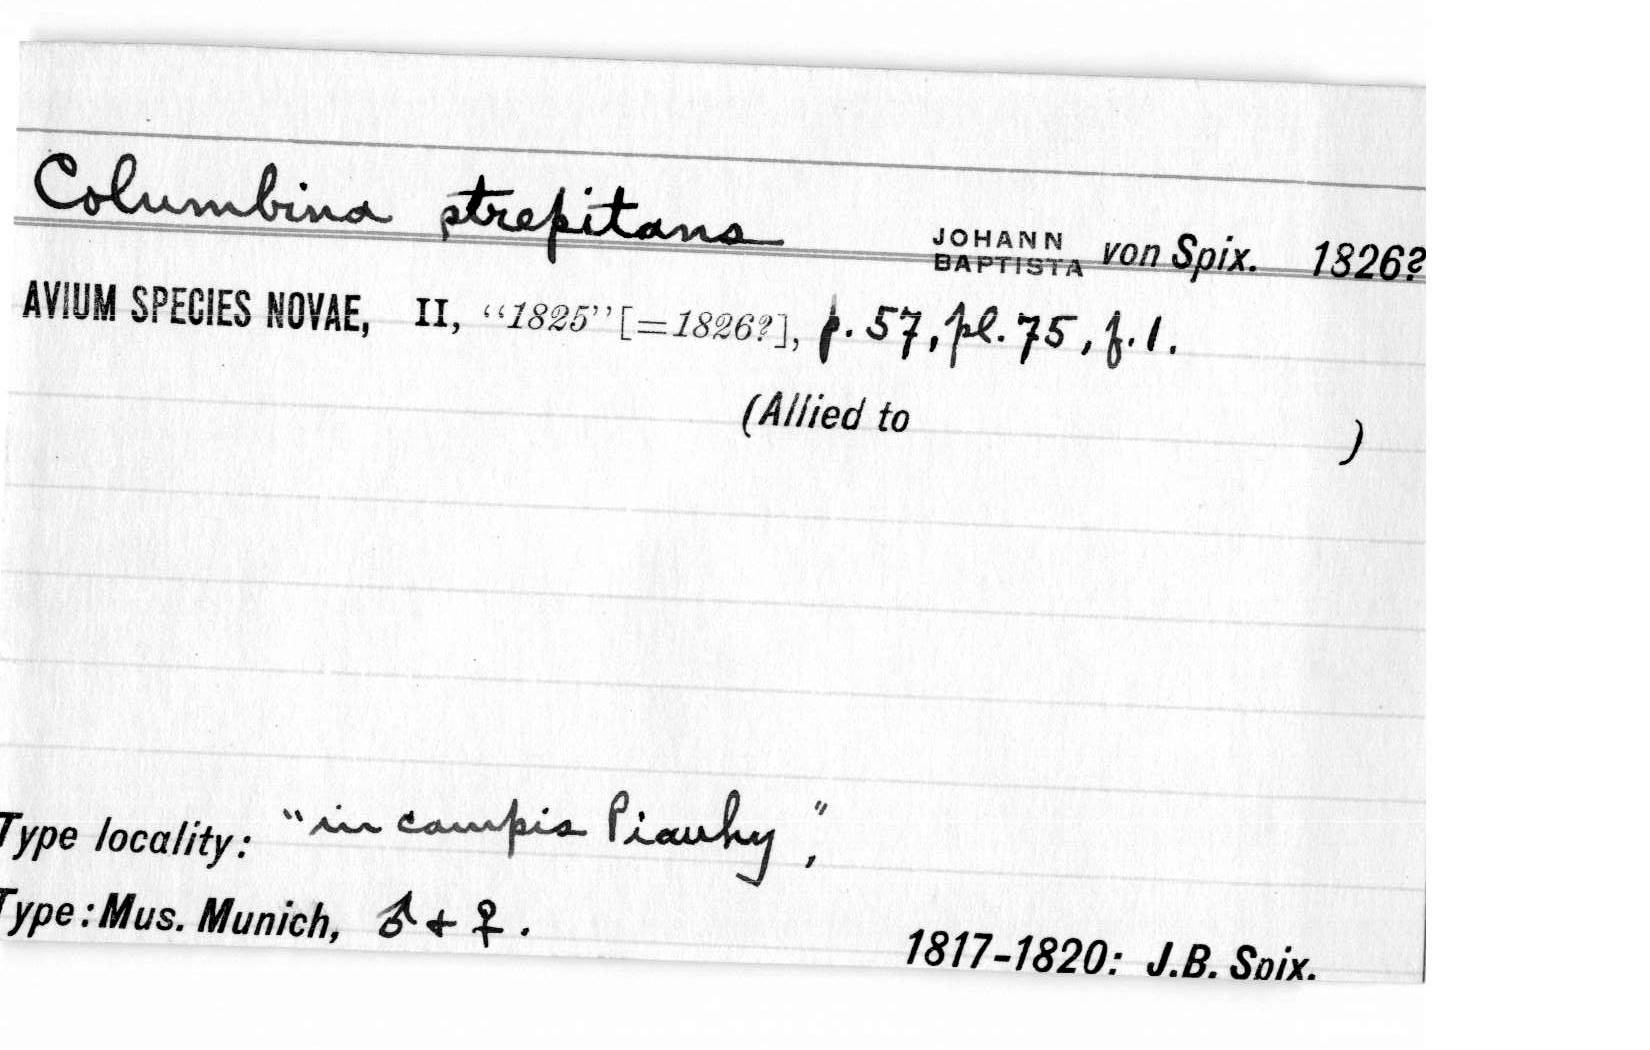 Columbina strepitans JOHANN BAPTISTA von Spix. 1826?
AVIUM SPECIES NOVAE, II, “1825” [=1826?], p. 57, pl. 75, f. 1.
(Allied to )
Type locality: "in campis Piauhy",
Type: Mus. Munich, ♂ + ♀.
1817-1820: J.B. Spix.